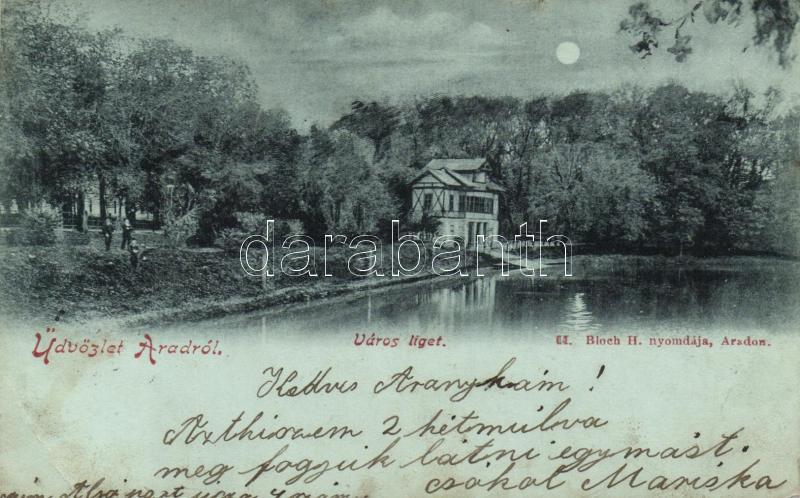 darabanth
Üdvözlet Aradról.
Város liget.
Bloch H. nyomdája, Aradon.
Kedves Aranykám!
Azthiszem 2 hétmúlva
meg fogjuk látni egymást.
csókol Mariska